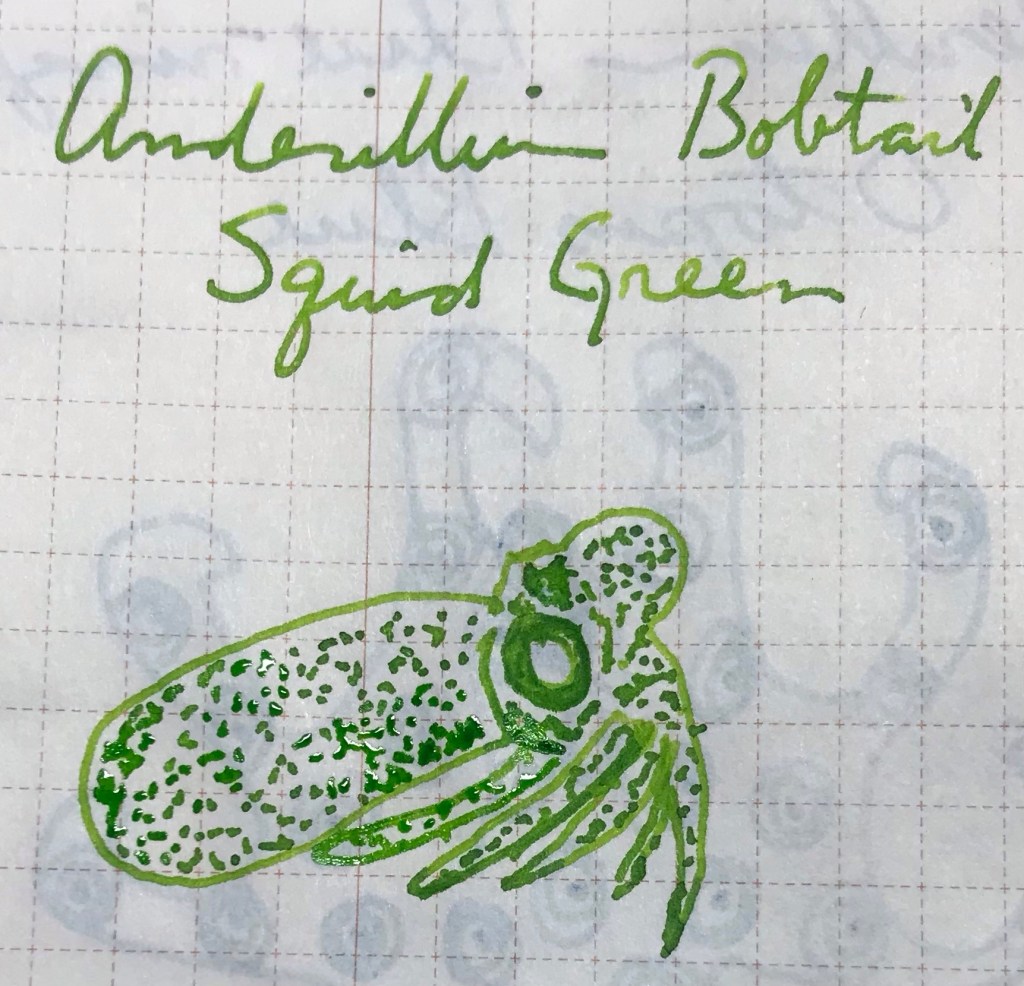 Anderillium Bobtail
Squid Green